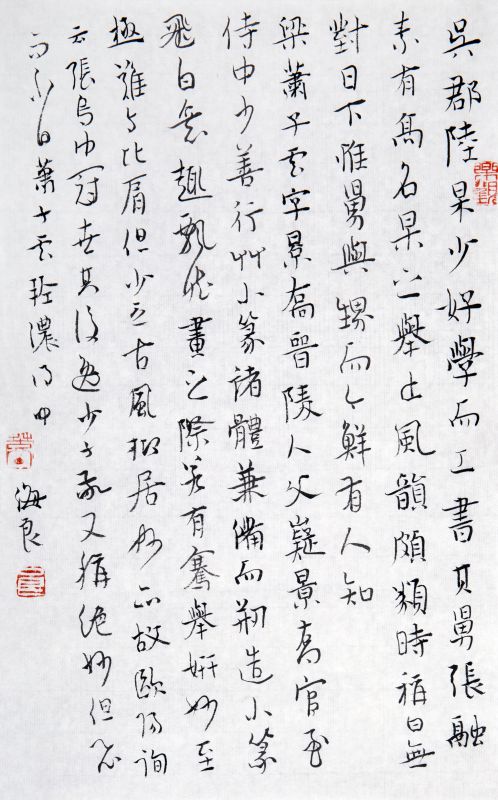 吳郡陸杲少好學而工書其舅張融
素有高名杲之舉止風韻頗類時稱曰無
對日下惟舅與甥而今鮮有人知
梁蕭子雲字景喬晉陵人父嶷景喬官至
侍中少善行艸小篆諸體兼備而刱造小篆
飛白意趣飄然畫之際若有騫舉妍妙至
極難与比肩但少乏古風抑居妙品故歐陽詢
云張烏巾冠世其後逸少子敬又稱絕妙但飛
而不白蕭子雲輕濃得中
海良